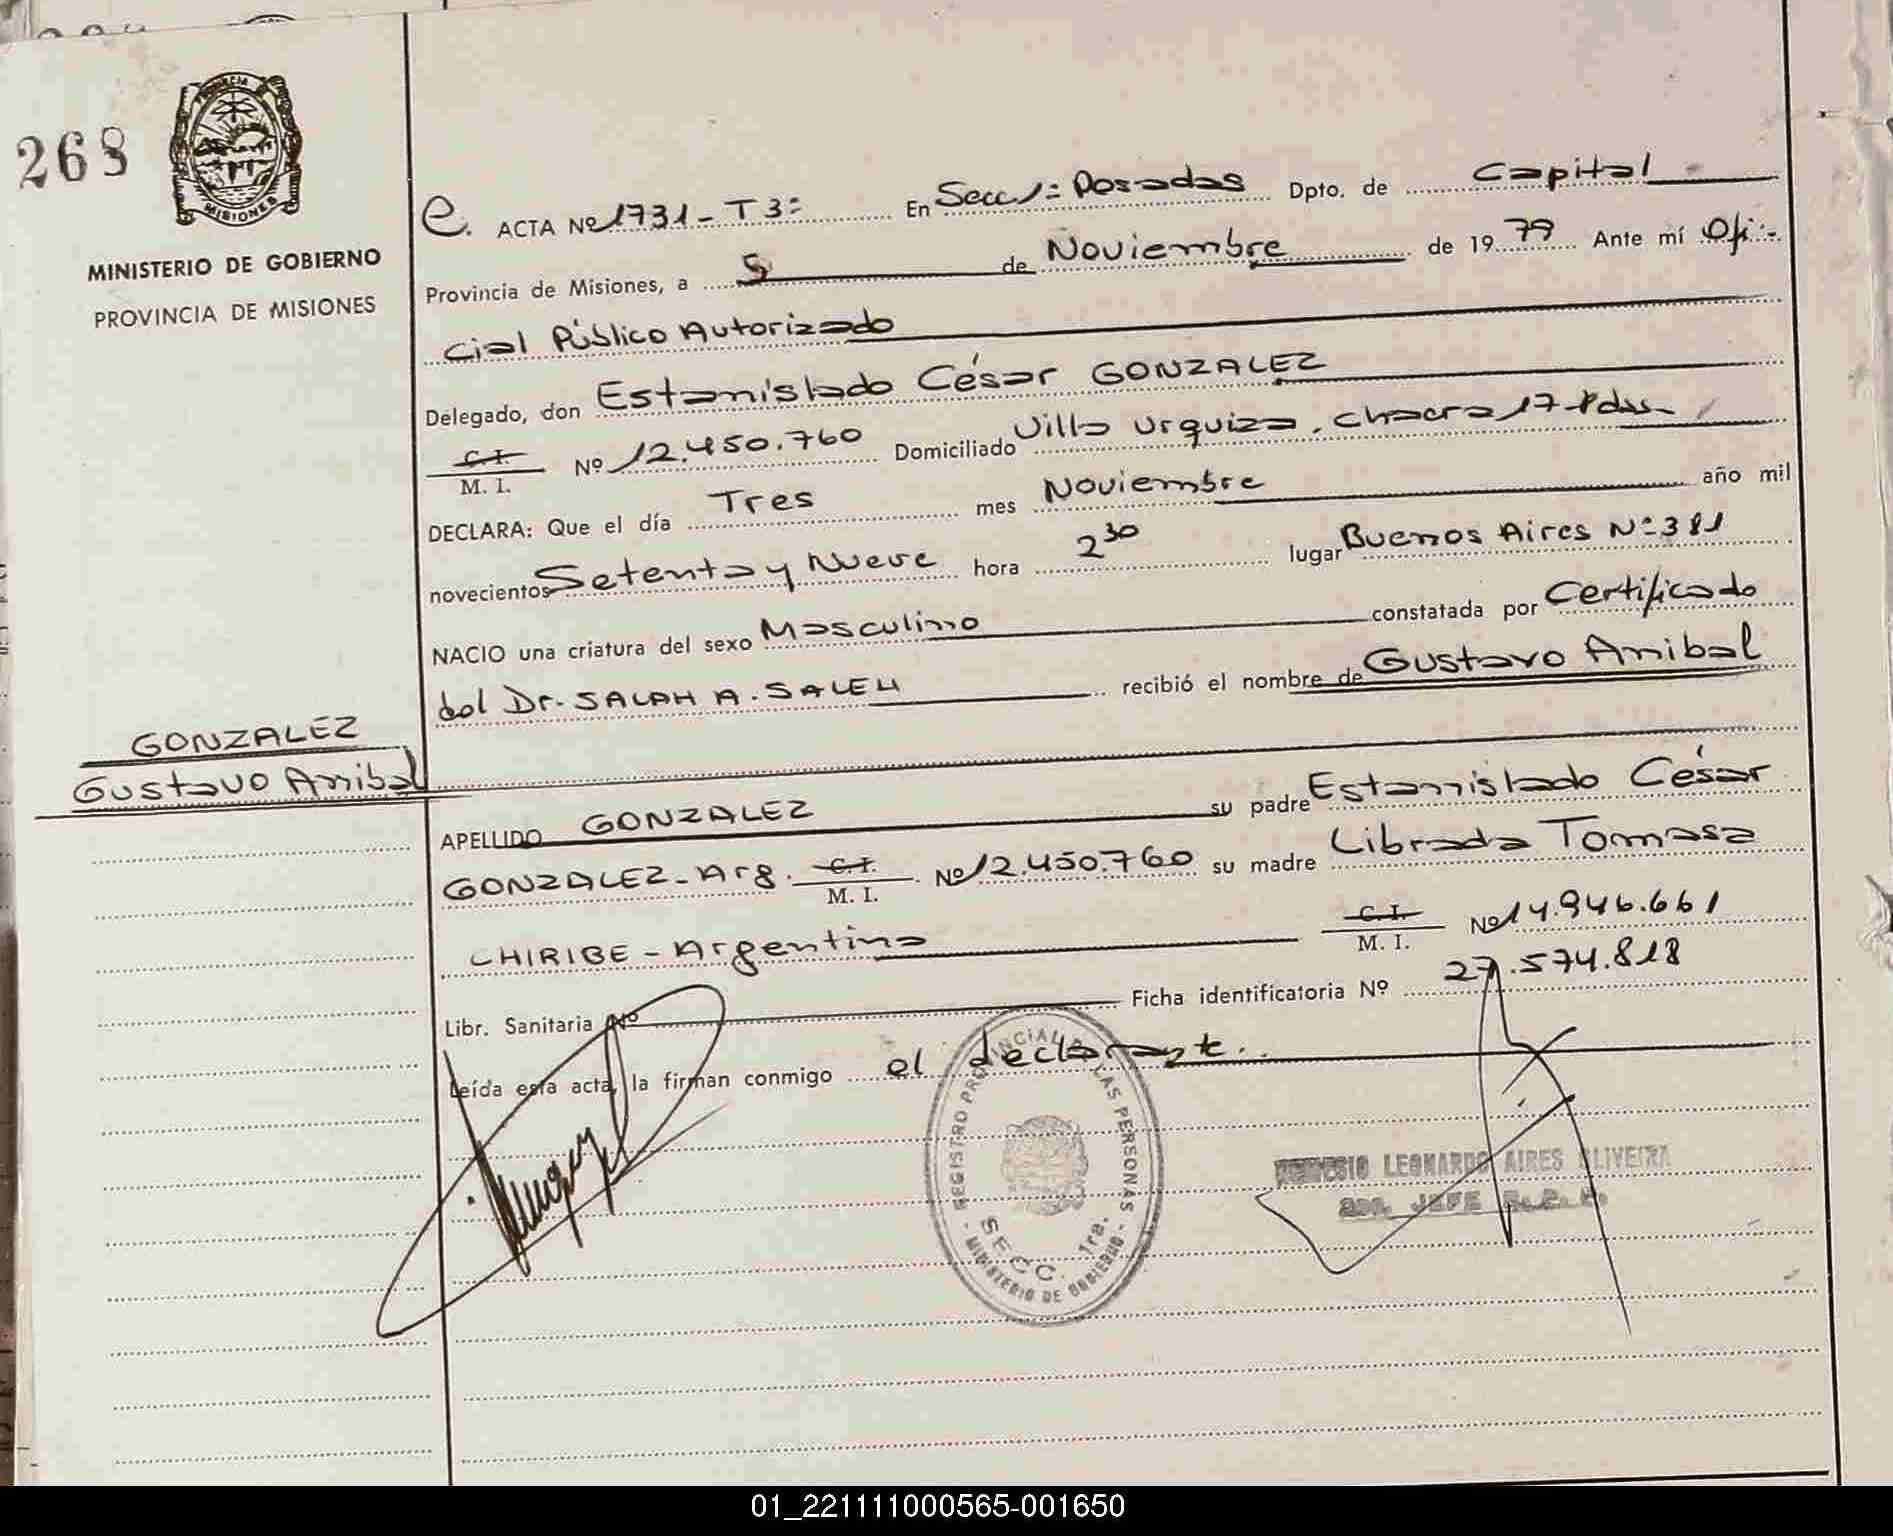 268
PROVINCIA DE
MISIONES
MINISTERIO DE GOBIERNO
PROVINCIA DE MISIONES
e. ACTA Nº 1731 - T 3º En Secc 1º Posadas Dpto. de Capital
Provincia de Misiones, a 5 de Noviembre de 1979 Ante mí Ofi-
cial Público Autorizado
Delegado, don Estanislado César GONZALEZ
C. I.
M. I. Nº 12.450.760 Domiciliado Villa Urquiza, chacra 17 - Pdas
DECLARA: Que el día Tres mes Noviembre año mil
novecientos Setenta y Nueve hora 2 30 lugar Buenos Aires Nº 381
NACIO una criatura del sexo Masculino constatada por Certificado
del Dr. SALAH A. SALEH recibió el nombre de Gustavo Anibal
GONZALEZ
Gustavo Anibal
APELLIDO GONZALEZ su padre Estanislado César
GONZALEZ - Arg. C. I. M. I. Nº 12.450.760 su madre Librada Tomasa
CHIRIBE - Argentina C. I. M. I. Nº 14.946.661
Libr. Sanitaria Nº Ficha identificatoria Nº 27.574.818
Leída esta acta, la firman conmigo el declarante.
REGISTRO PROVINCIAL DE LAS PERSONAS
SECC. 1ra.
- MINISTERIO DE GOBIERNO -
LEONARDO AIRES OLIVEIRA
JEFE
01_221111000565-001650